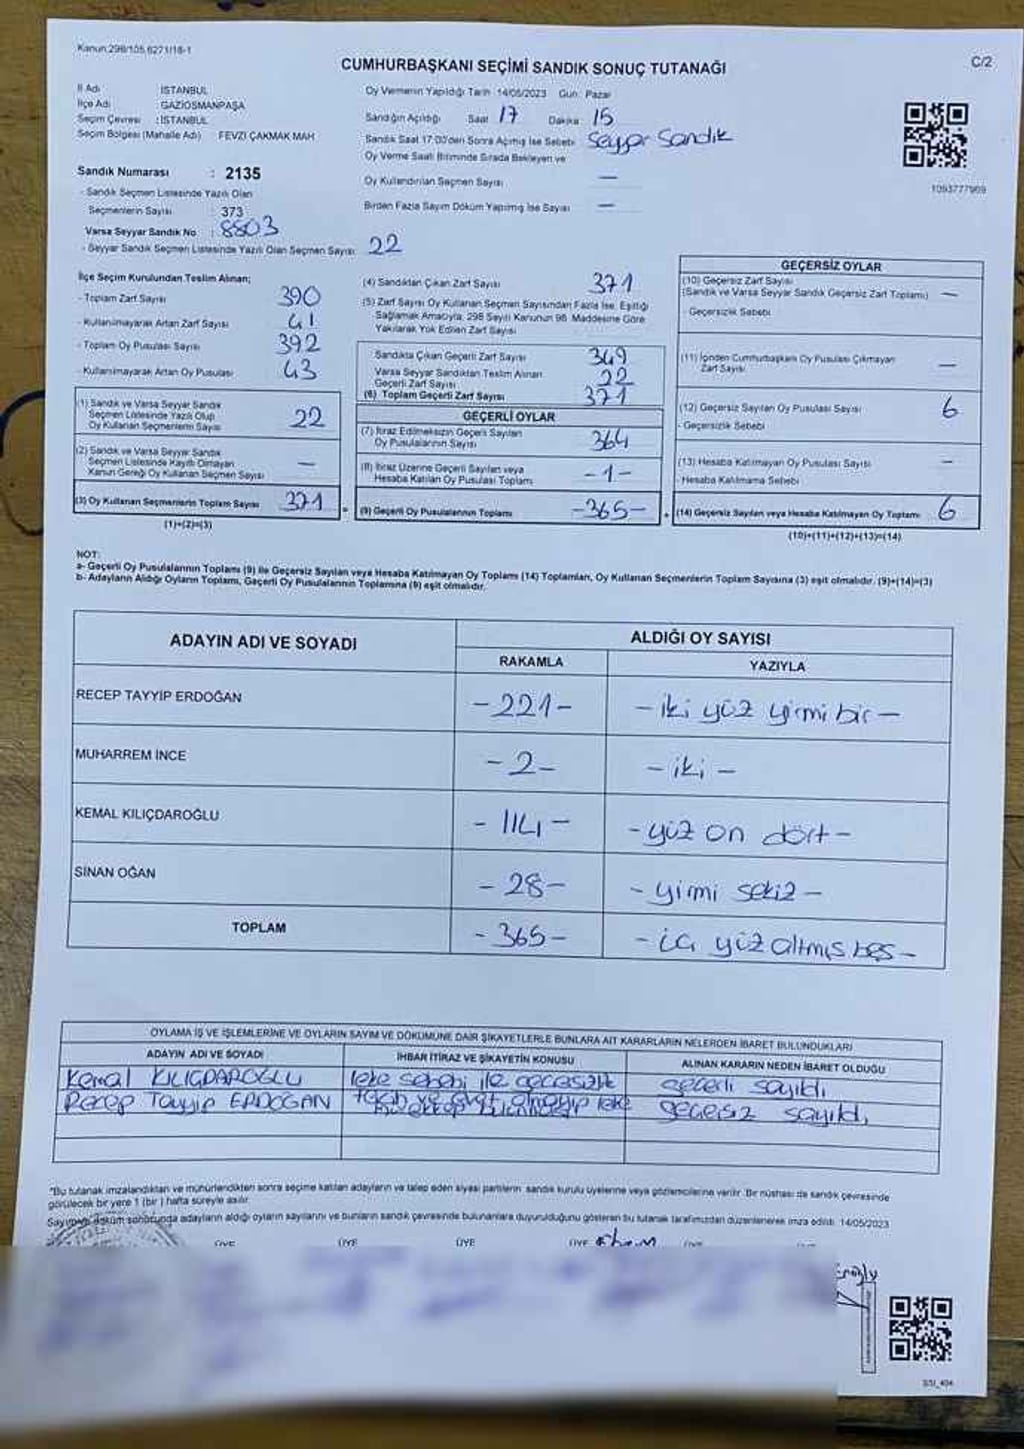 Kanun:298/105,6271/18-1
C/2
CUMHURBAŞKANI SEÇİMİ SANDIK SONUÇ TUTANAĞI
İl Adı : İSTANBUL
İlçe Adı : GAZİOSMANPAŞA
Seçim Çevresi : İSTANBUL
Seçim Bölgesi (Mahalle Adı) FEVZİ ÇAKMAK MAH
Sandık Numarası : 2135
- Sandık Seçmen Listesinde Yazılı Olan
Seçmenlerin Sayısı : 373
Varsa Seyyar Sandık No : 8803
- Seyyar Sandık Seçmen Listesinde Yazılı Olan Seçmen Sayısı 22
Oy Vermenin Yapıldığı Tarih :14/05/2023 Gün: Pazar
Sandığın Açıldığı Saat 17 Dakika 15
Sandık Saat 17:00'den Sonra Açılmış İse Sebebi Seyyar Sandık
Oy Verme Saati Bitiminde Sırada Bekleyen ve
Oy Kullandırılan Seçmen Sayısı —
Birden Fazla Sayım Döküm Yapılmış İse Sayısı —
1093777969
İlçe Seçim Kurulundan Teslim Alınan;
- Toplam Zarf Sayısı 390
- Kullanılmayarak Artan Zarf Sayısı 41
- Toplam Oy Pusulası Sayısı 392
- Kullanılmayarak Artan Oy Pusulası 43
(1) Sandık ve Varsa Seyyar Sandık
Seçmen Listesinde Yazılı Olup
Oy Kullanan Seçmenlerin Sayısı 22
(2) Sandık ve Varsa Seyyar Sandık
Seçmen Listesinde Kayıtlı Olmayan
Kanun Gereği Oy Kullanan Seçmen Sayısı —
(3) Oy Kullanan Seçmenlerin Toplam Sayısı 371
(1)+(2)=(3)
(4) Sandıktan Çıkan Zarf Sayısı 371
(5) Zarf Sayısı Oy Kullanan Seçmen Sayısından Fazla İse, Eşitliği
Sağlamak Amacıyla, 298 Sayılı Kanunun 98. Maddesine Göre
Yakılarak Yok Edilen Zarf Sayısı
Sandıkta Çıkan Geçerli Zarf Sayısı 349
Varsa Seyyar Sandıktan Teslim Alınan
Geçerli Zarf Sayısı 22
(6) Toplam Geçerli Zarf Sayısı 371
GEÇERLİ OYLAR
(7) İtiraz Edilmeksizin Geçerli Sayılan
Oy Pusulalarının Sayısı 364
(8) İtiraz Üzerine Geçerli Sayılan veya
Hesaba Katılan Oy Pusulası Toplamı -1-
(9) Geçerli Oy Pusulalarının Toplamı -365-
GEÇERSİZ OYLAR
(10) Geçersiz Zarf Sayısı
(Sandık ve Varsa Seyyar Sandık Geçersiz Zarf Toplamı) —
- Geçersizlik Sebebi
(11) İçinden Cumhurbaşkanı Oy Pusulası Çıkmayan
Zarf Sayısı —
(12) Geçersiz Sayılan Oy Pusulası Sayısı 6
- Geçersizlik Sebebi
(13) Hesaba Katılmayan Oy Pusulası Sayısı —
- Hesaba Katılmama Sebebi
(14) Geçersiz Sayılan veya Hesaba Katılmayan Oy Toplamı 6
(10)+(11)+(12)+(13)=(14)
NOT:
a- Geçerli Oy Pusulalarının Toplamı (9) ile Geçersiz Sayılan veya Hesaba Katılmayan Oy Toplamı (14) Toplamları, Oy Kullanan Seçmenlerin Toplam Sayısına (3) eşit olmalıdır. (9)+(14)=(3)
b- Adayların Aldığı Oyların Toplamı, Geçerli Oy Pusulalarının Toplamına (9) eşit olmalıdır.
ADAYIN ADI VE SOYADI ALDIĞI OY SAYISI
RAKAMLA YAZIYLA
RECEP TAYYİP ERDOĞAN -221- -iki yüz yirmi bir-
MUHARREM İNCE -2- -iki-
KEMAL KILIÇDAROĞLU -114- -yüz on dört-
SİNAN OĞAN -28- -yirmi sekiz-
TOPLAM -365- -üç yüz altmış beş-
OYLAMA İŞ VE İŞLEMLERİNE VE OYLARIN SAYIM VE DÖKÜMÜNE DAİR ŞİKAYETLERLE BUNLARA AİT KARARLARIN NELERDEN İBARET BULUNDUKLARI
ADAYIN ADI VE SOYADI İHBAR İTİRAZ VE ŞİKAYETİN KONUSU ALINAN KARARIN NEDEN İBARET OLDUĞU
Kemal KILIÇDAROĞLU leke sebebi ile geçersizlik geçerli sayıldı
Recep Tayyip ERDOĞAN leke geçersiz sayıldı,
*Bu tutanak imzalandıktan ve mühürlendikten sonra seçime katılan adayların ve talep eden siyasi partilerin sandık kurulu üyelerine veya gözlemcilerine verilir. Bir nüshası de sandık çevresinde
görülecek bir yere 1 (bir ) hafta süreyle asılır.
Sayım ve döküm sonucunda adayların aldığı oyların sayılarını ve bunların sandık çevresinde bulunanlara duyurulduğunu gösteren bu tutanak tarafımızdan düzenlenerek imza edildi. 14/05/2023
ÜYE ÜYE ÜYE ÜYE